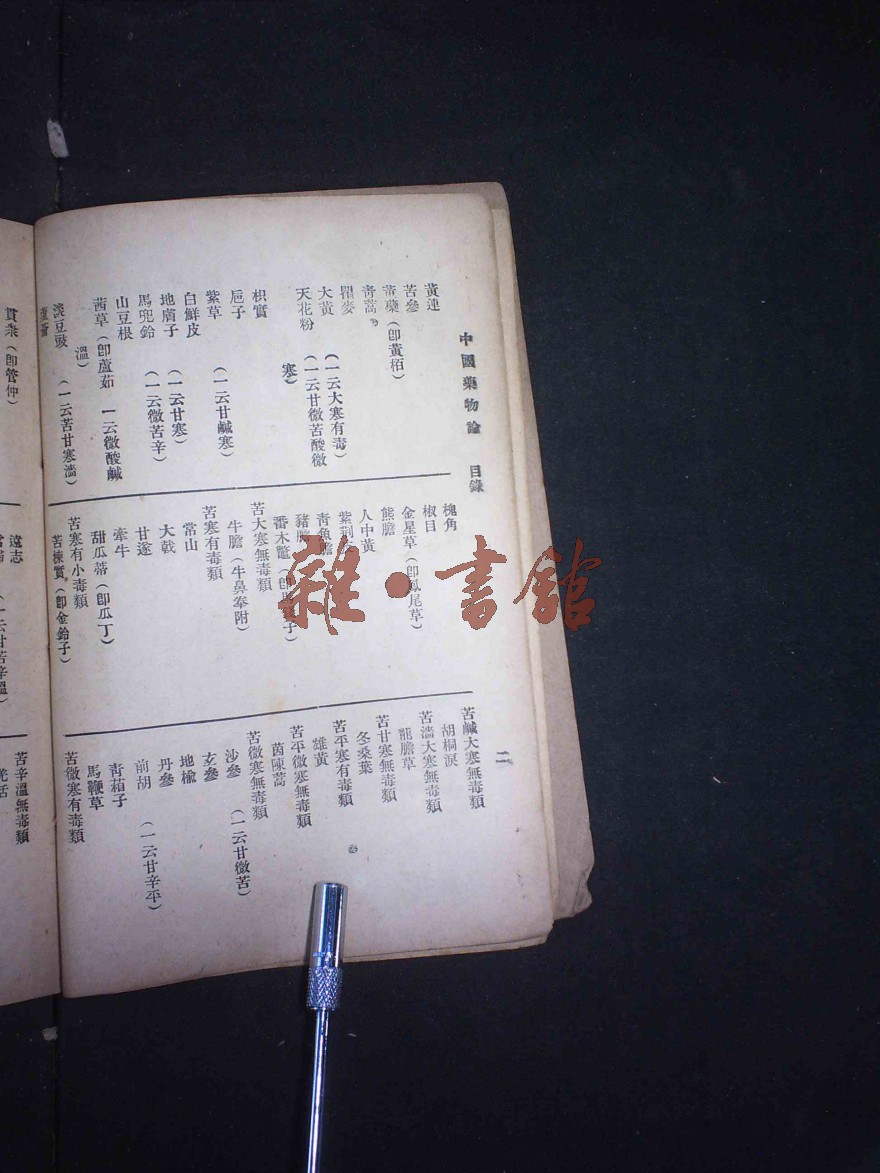 中國藥物論　目錄
二
黃連
苦參
黃蘗（卽黃栢）
靑蒿
瞿麥
大黃（一云大寒有毒）
天花粉（一云甘微苦酸微
寒）
枳實
巵子
紫草（一云甘鹹寒）
白鮮皮
地膚子（一云甘寒）
馬兜鈴（一云微苦辛）
山豆根
茜草（卽蘆茹　一云微酸鹹
溫）
淡豆豉（一云苦甘寒濇）
槐角
椒目
金星草（卽鳳尾草）
熊膽
人中黃
紫荆
靑魚膽
豬膽
番木鼈
苦大寒無毒類
牛膽（牛鼻拳附）
苦寒有毒類
常山
大戟
甘遂
牽牛
甜瓜蒂（卽瓜丁）
苦寒有小毒類
苦楝實（卽金鈴子）
苦鹹大寒無毒類
胡桐淚
苦濇大寒無毒類
龍膽草
苦甘寒無毒類
冬桑葉
苦平寒有毒類
雄黃
苦平微寒無毒類
茵陳蒿
苦微寒無毒類
沙參（一云甘微苦）
玄參
地楡
丹參
前胡（一云甘辛平）
靑葙子
馬鞭草
苦微寒有毒類
貫衆（卽管仲）
遠志
（一云甘苦辛溫）
苦辛溫無毒類
羌活
雜·書館